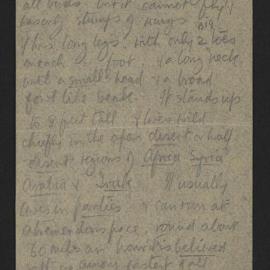 all birds, but it cannot fly,
stumps of wings
It has long legs, with only 2 toes
on each foot, & a long neck
with a small head & a broad
beak. It stands up
to 8 feet tall & lives wild
chiefly in the open desert or half
desert regions of Africa Syria
Arabia & Irak. It usually
lives in parties & can run at
a tremendous pace, round about
60 miles an hour is believed